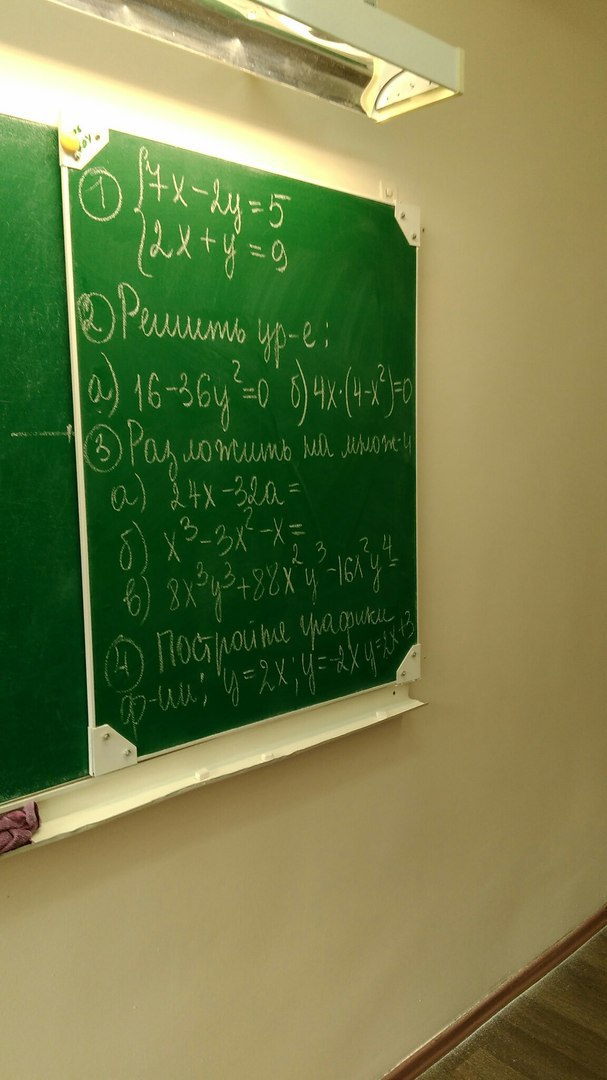 ① {7x-2y=5
{2x+y=9
② Решить ур-е:
а) 16-36y²=0 б) 4x·(4-x²)=0
③ Разложить на множ-и
а) 24x-32a=
б) x³-3x²-x=
в) 8x³y³+88x²y³-16x²y⁴=
④ Постройте графики
ф-ии; y=2x; y=-2x y=2x+3